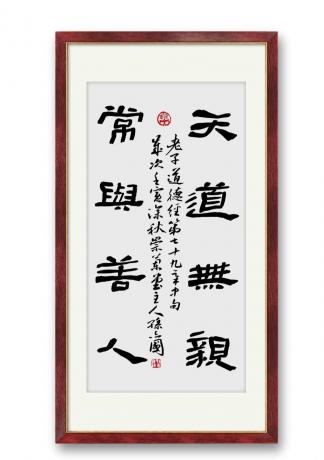 天道無親
常與善人
老子道德經第七十九章中句
歲次壬寅深秋崇堂主人孫國